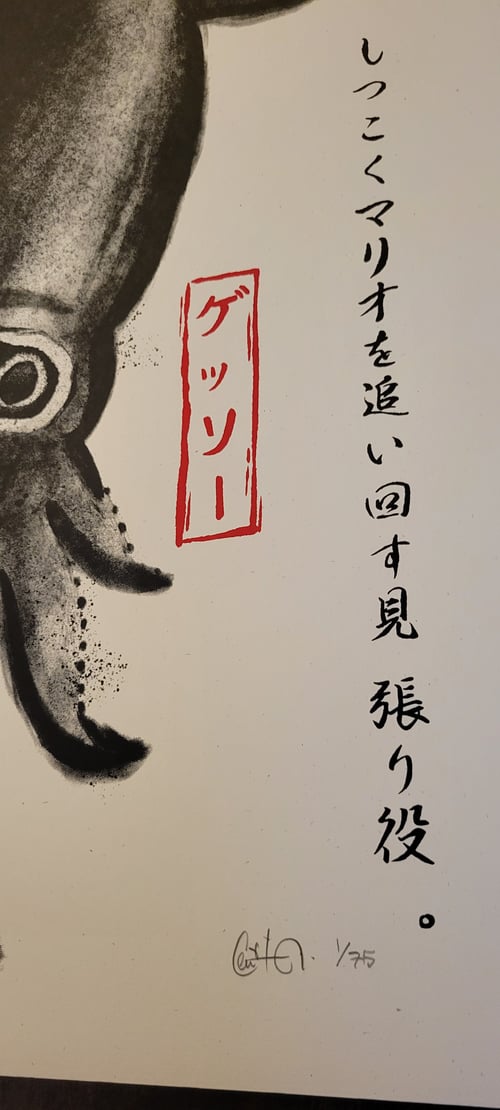 しつこくマリオを追い回す見張り役。
ゲッソー
1/75